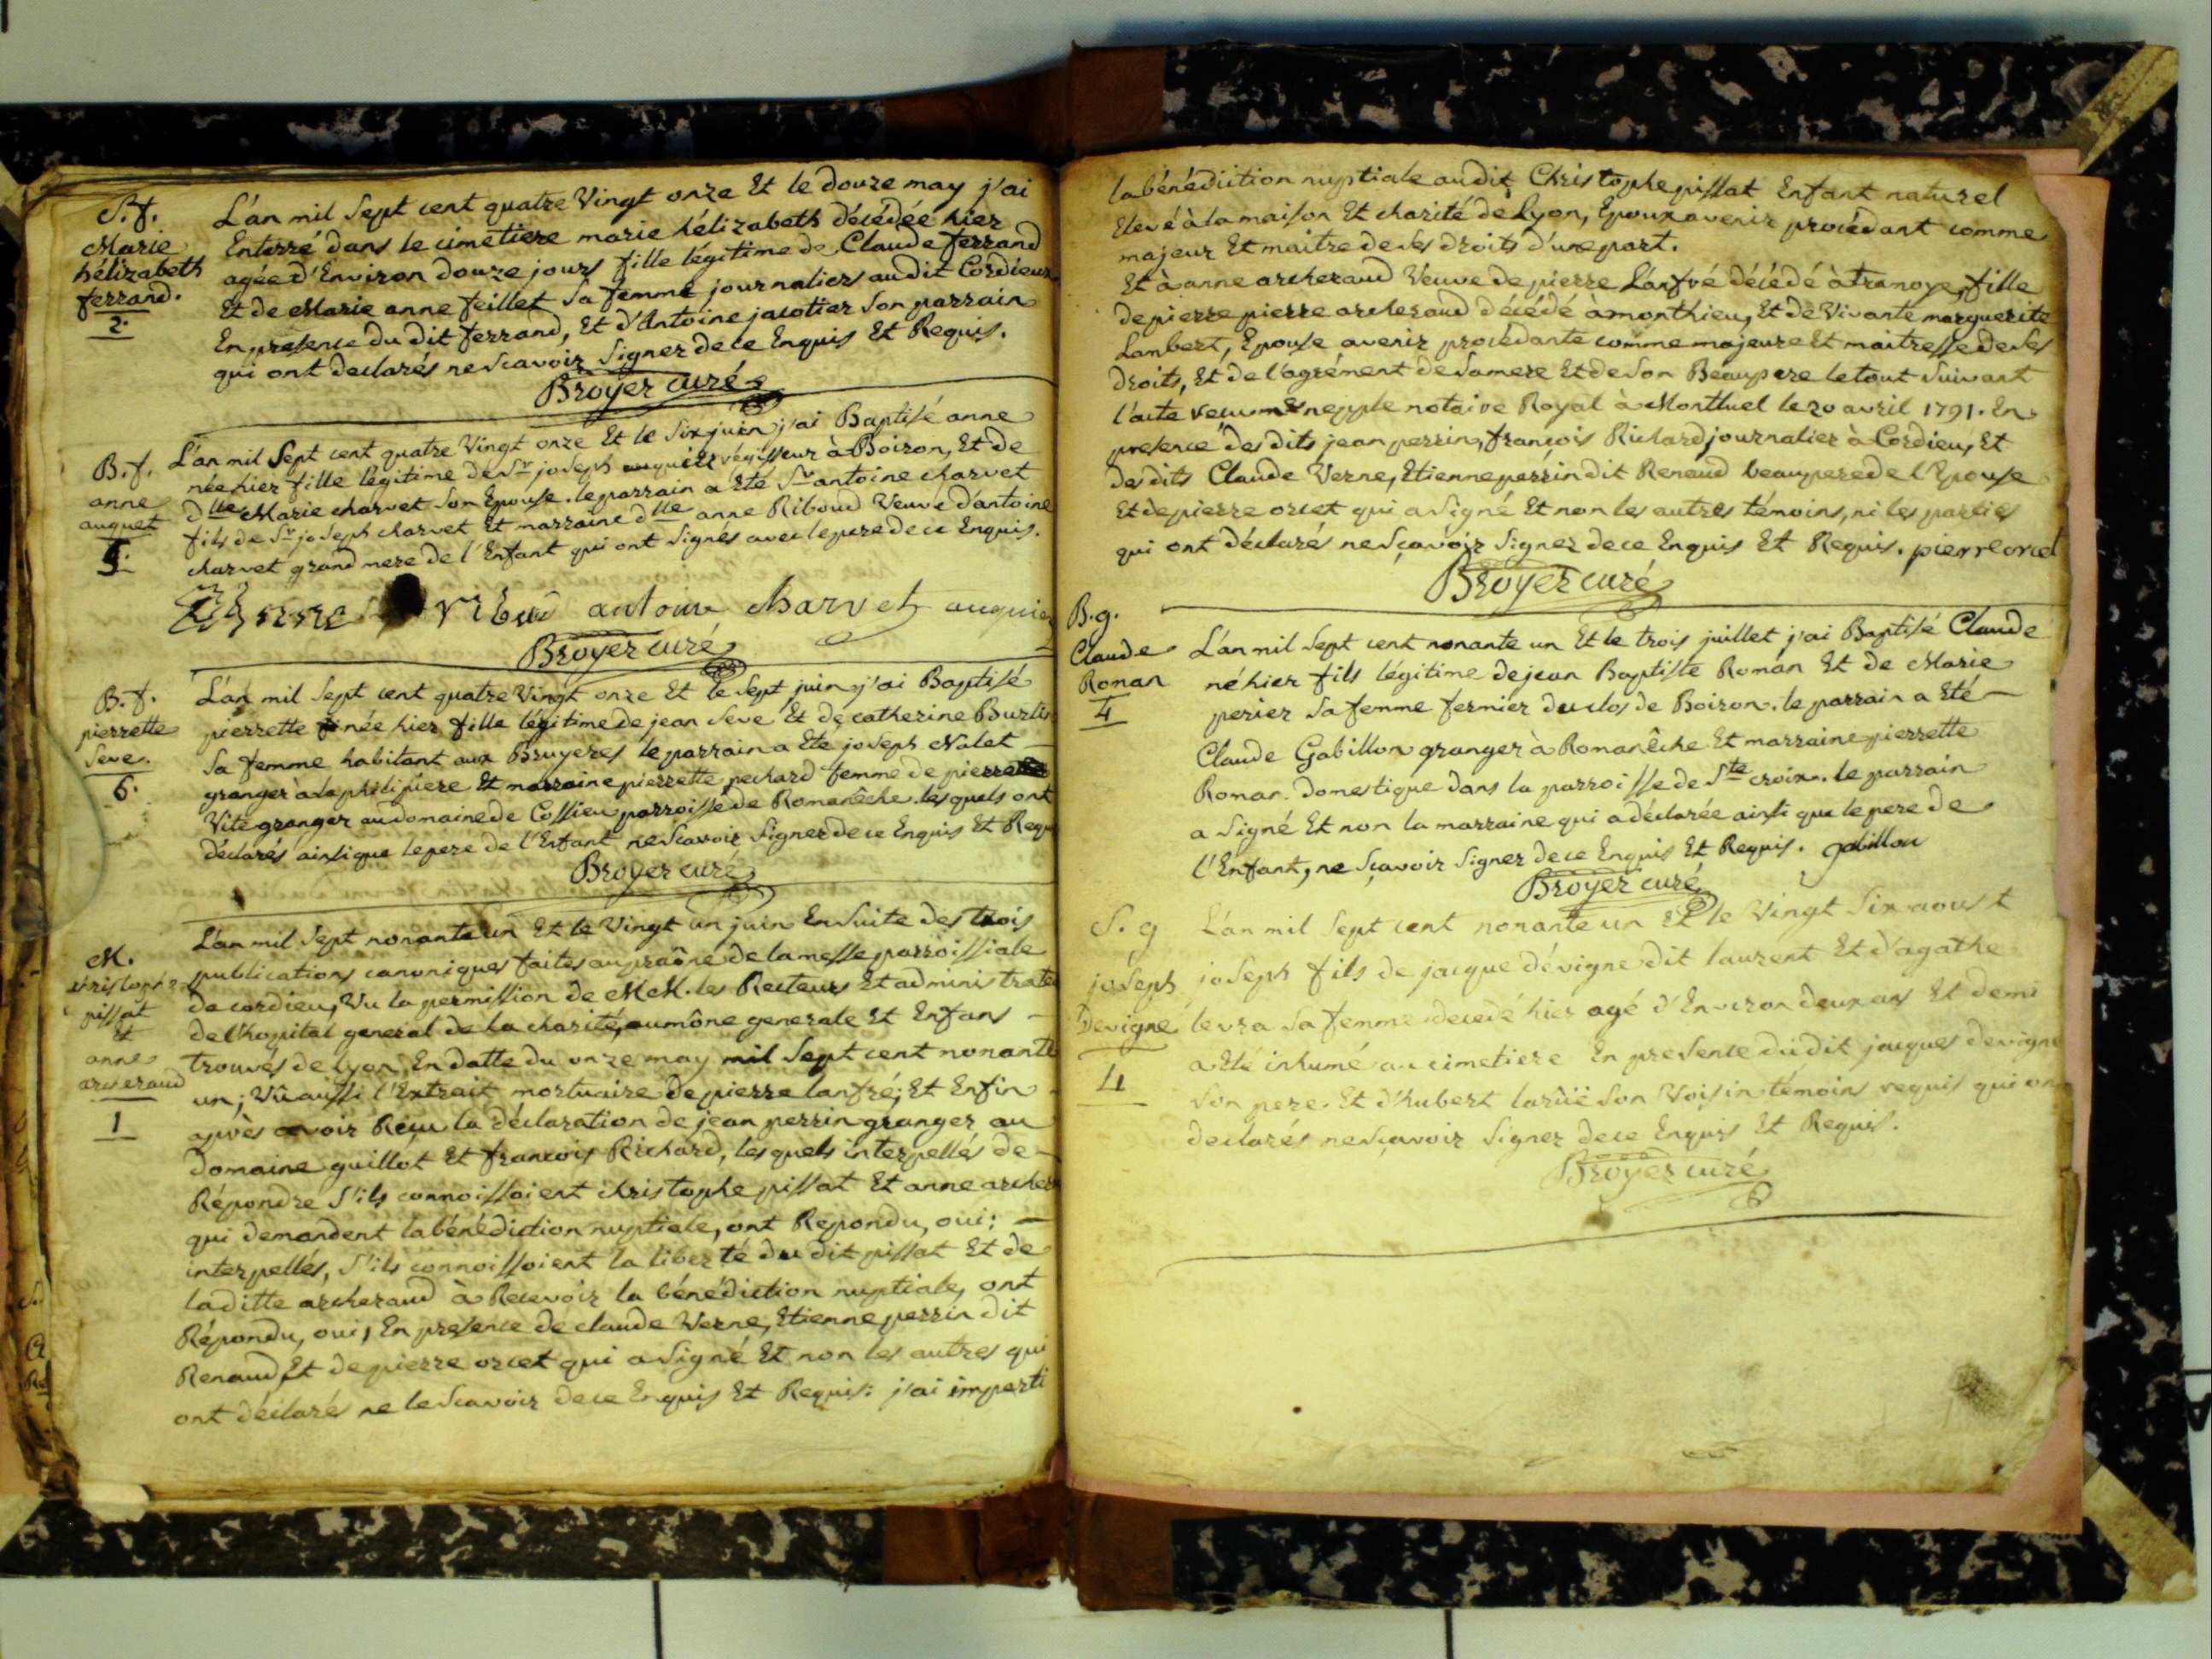 S.f.
Marie
hélizabeth
ferrand.
2.
L'an mil Sept cent quatre Vingt onze Et le douze may j'ai
Enterré dans le cimetiere marie hélizabeth décédée hier
agée d'Environ douze jours fille légitime de Claude ferrand
Et de Marie anne feillet Sa femme journaliers audit Cordieux
En presence du dit ferrand, Et d'Antoine jacotier Son parrain
qui ont declarés ne Scavoir Signer de ce Enquis Et Requis.
Broyer curé
B.f.
anne
auguet
5.
L'an mil Sept cent quatre Vingt onze Et le Six juin j'ai Baptisé anne
née hier fille légitime de Sr joseph régisseur à Boiron, Et de
dlle Marie charvet Son Epouse. le parrain a Eté Sr antoine charvet
fils de Sr joseph charvet Et marraine dlle anne Riboud Veuve d'antoine
charvet grand mere de l'Enfant qui ont Signés avec le pere de ce Enquis.
antoine Charvet
Broyer curé
B.f.
pierrette
Seve.
6.
L'an mil Sept cent quatre Vingt onze Et le Sept juin j'ai Baptisé
pierrette née hier fille légitime de jean Seve Et de catherine
Sa femme habitant aux Bruyeres le parrain a Eté joseph Nalet
granger à la philipiere Et marraine pierrette pechard femme de pierre
Vite granger au domaine de Cossieu parroisse de Romanêche. lesquels ont
déclarés ainsi que le pere de l'Enfant ne Scavoir Signer de ce Enquis Et Requis
Broyer curé
M.
christophe
pissat
Et
anne
archeraud
1
L'an mil Sept nonante un Et le Vingt un juin En Suite des trois
publications canoniques faites au praône de la messe parroissiale
de cordieu, Vu la permission de M.M. les Recteurs Et administrateurs
de l'hopital general de la charité, aumône generale Et Enfans
trouvés de Lyon En datte du onze may mil Sept cent nonante
un; Vû aussi l'Extrait mortuaire de pierre lanfré; Et Enfin
après avoir Reçu la déclaration de jean perrin granger au
domaine guillot Et françois Richard, lesquels interpellés de
Répondre S'ils connoissoient christophe pissat Et anne archeraud
qui demandent la bénédiction nuptiale, ont Repondu, oui;
interpellés, S'ils connoissoient la liberté du dit pissat Et de
laditte archeraud à Recevoir la bénédiction nuptiale, ont
Répondu, oui, En presence de claude Verne, Etienne perrin dit
Renaud, Et de pierre orcet qui a Signé Et non les autres qui
ont déclarés ne le Scavoir de ce Enquis Et Requis: j'ai imparti
la bénédiction nuptiale audit Christophe pissat Enfant naturel
Elevé à la maison Et charité de Lyon, Epoux avenir procédant comme
majeur Et maitre de ses droits d'une part.
Et à anne archeraud Veuve de pierre Lanfré décédé à tramoye, fille
de pierre pierre archeraud décédé à monthieu, Et de Vivante marguerite
Lambert, Epouse avenir procédante comme majeure Et maitresse de Ses
droits, Et de l'agrément de Sa mere Et de Son Beaupere le tout Suivant
l'acte notaire Royal à Montluel le 20 avril 1791. En
presence des dits jean perrin, françois Richard journalier à Cordieu, Et
des dits Claude Verne, Etienne perrin dit Renaud beaupere de l'Epouse
Et de pierre orcet qui a Signé Et non les autres témoins, ni les parties
qui ont déclarés ne Sçavoir Signer de ce Enquis Et Requis. pierre orcet
Broyer curé
B.g.
Claude
Roman
4
L'an mil Sept cent nonante un Et le trois juillet j'ai Baptisé Claude
né hier fils légitime de jean Baptiste Roman Et de Marie
perier Sa femme fermier du clos de Boiron. le parrain a Eté
Claude Gabillon granger à Romanêche Et marraine pierrette
Roman domestique dans la parroisse de Ste croix. le parrain
a Signé Et non la marraine qui a déclarée ainsi que le pere de
l'Enfant, ne Sçavoir Signer de ce Enquis Et Requis. gabillon
Broyer curé
S.g
joseph
Devigne
4
L'an mil Sept cent nonante un Et le Vingt Six aoust
joseph fils de jacque dévigne dit laurent Et d'agathe
levra Sa femme decedé hier agé d'Environ deux ans Et demi
a Eté inhumé au cimetiere En presence dudit jacques devigne
Son pere. Et d'hubert larüe Son Voisin témoins requis qui ont
declarés ne Sçavoir Signer de ce Enquis Et Requis.
Broyer curé